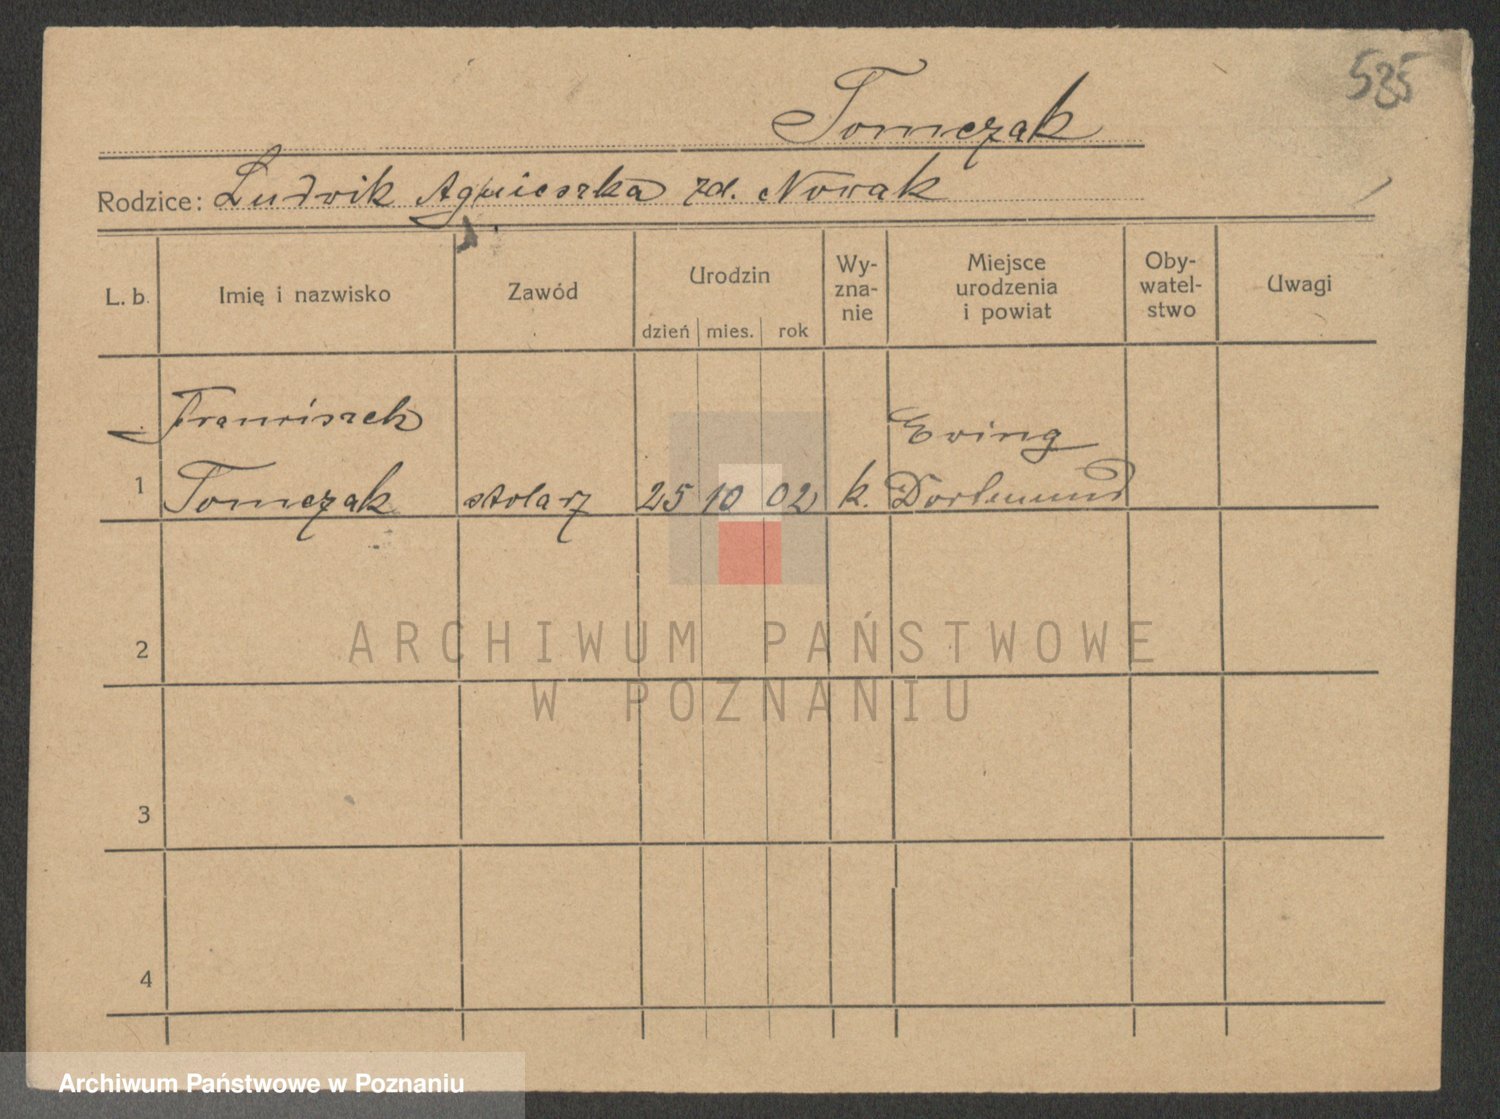 585
Tomczak
Rodzice: Ludwik Agnieszka zd. Nowak
L. b.
Imię i nazwisko
Zawód
Urodzin
dzień mies. rok
Wy-
zna-
nie
Miejsce
urodzenia
i powiat
Oby-
watel-
stwo
Uwagi
Franciszek
Eving
1 Tomczak stolarz 25 10 02 k. Dortmund
2
ARCHIWUM PAŃSTWOWE
W POZNANIU
3
4
Archiwum Państwowe w Poznaniu